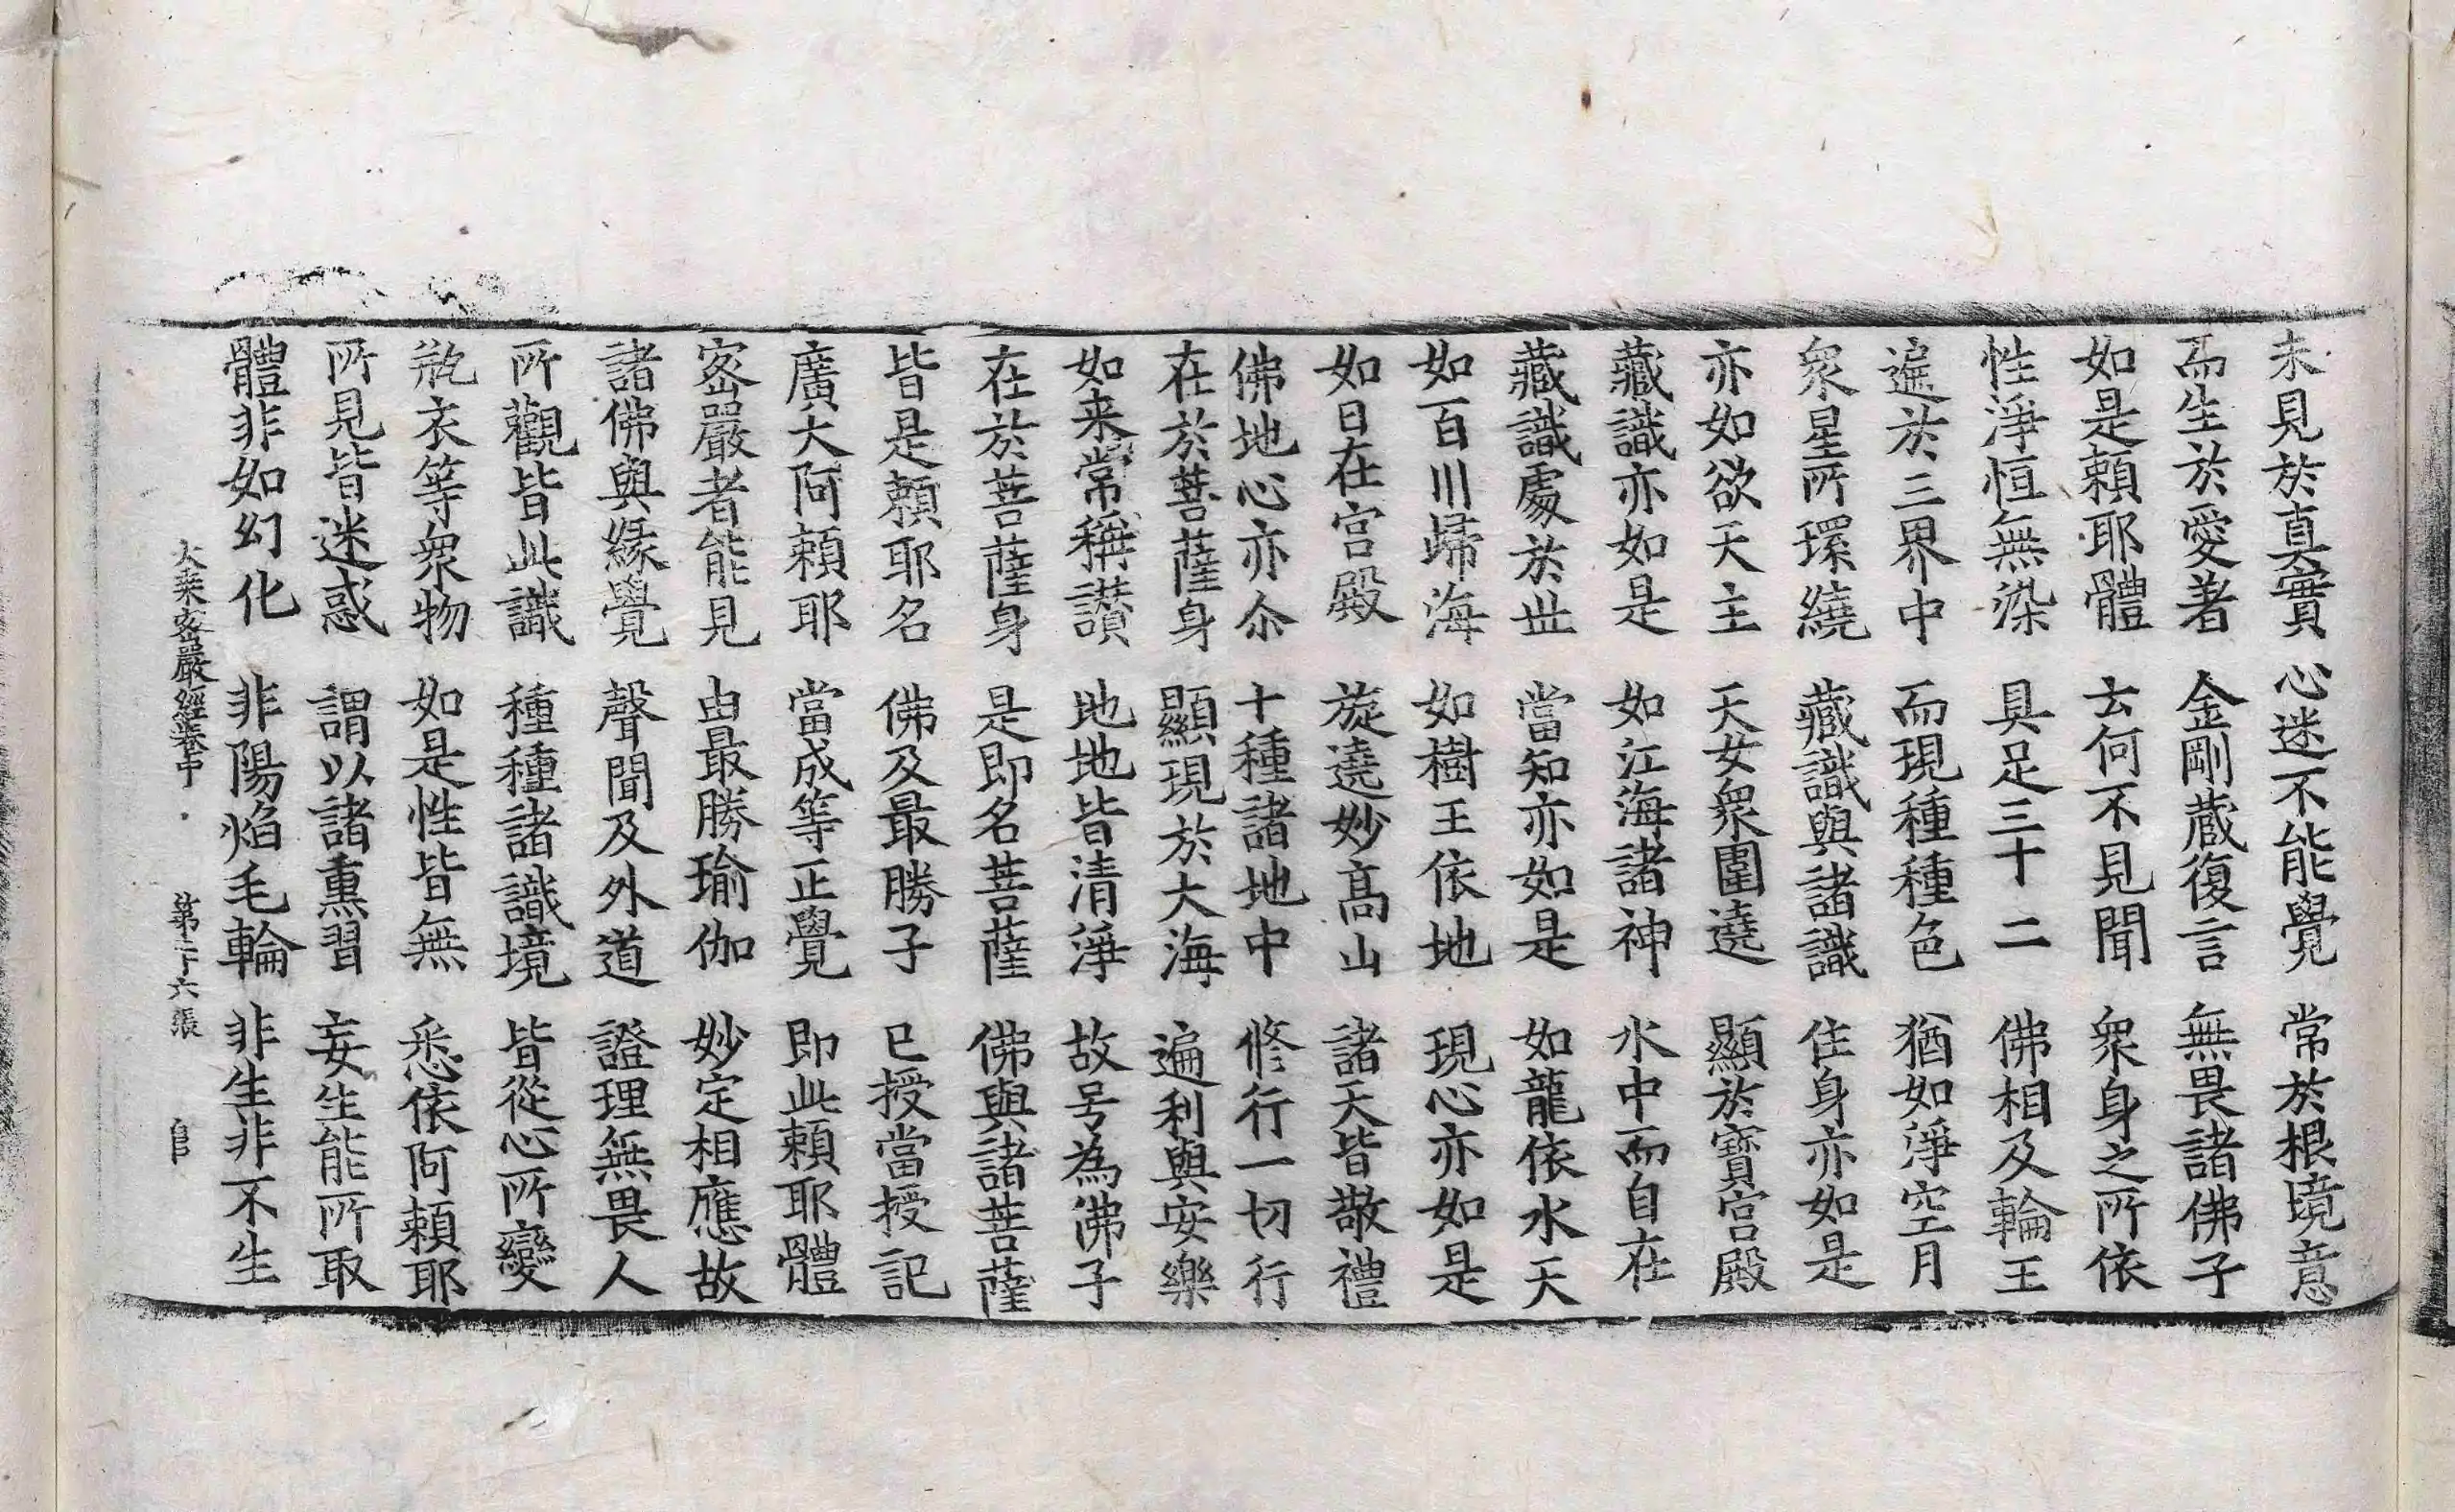 未見於真實 心迷不能覺 常於根境意
而生於愛著 金剛蔵復言 無畏諸佛子
如是頼耶體 云何不見聞 衆身之所依
性淨恒無染 具足三十二 佛相及輪王
遍於三界中 而現種種色 猶如淨空月
衆星所環繞 藏識與諸識 住身亦如是
亦如欲天主 天女衆圍遶 顯於寶宫殿
藏識亦如是 如江海諸神 水中而自在
藏識處於世 當知亦如是 如龍依水天
如百川歸海 如樹王依地 現心亦如是
如日在宫殿 旋遶妙髙山 諸天皆敬禮
佛地心亦尒 十種諸地中 修行一切行
在於菩薩身 顯現於大海 遍利與安樂
如来常稱讃 地地皆清淨 故号為佛子
在於菩薩身 是即名菩薩 佛與諸菩薩
皆是頼耶名 佛及最勝子 已授當授記
廣大阿頼耶 當成等正覺 即此頼耶體
宻嚴者能見 由最勝瑜伽 妙定相應故
諸佛與緣覺 聲聞及外道 證理無畏人
所觀皆此識 種種諸識境 皆從心所變
瓶衣等衆物 如是性皆無 悉依阿頼耶
所見皆迷惑 謂以諸熏習 妄生能所取
體非如幻化 非陽焰毛輪 非生非不生
大乘宻嚴經卷中 第二十六張